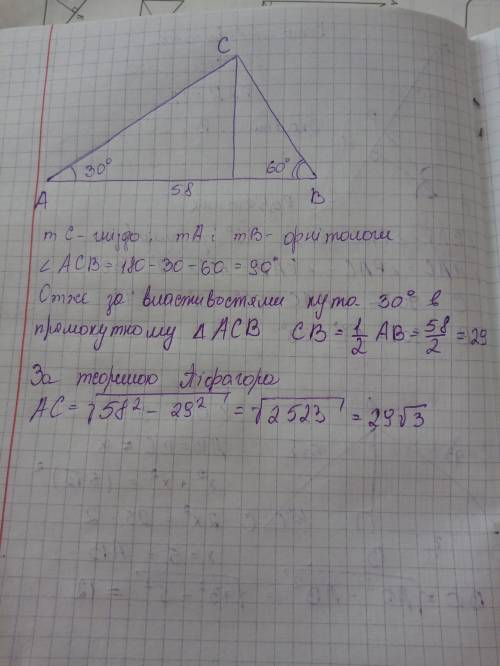 C
30°
60°
A
58
B
т C - гніздо, т A і т B - орнітологи
∠ ACB = 180 - 30 - 60 = 90°
Отже за властивостями кута 30° в
прямокутному Δ ACB CB = 1/2 AB = 58/2 = 29
За теоремою Піфагора
AC = √58² - 29² = √2523 = 29√3